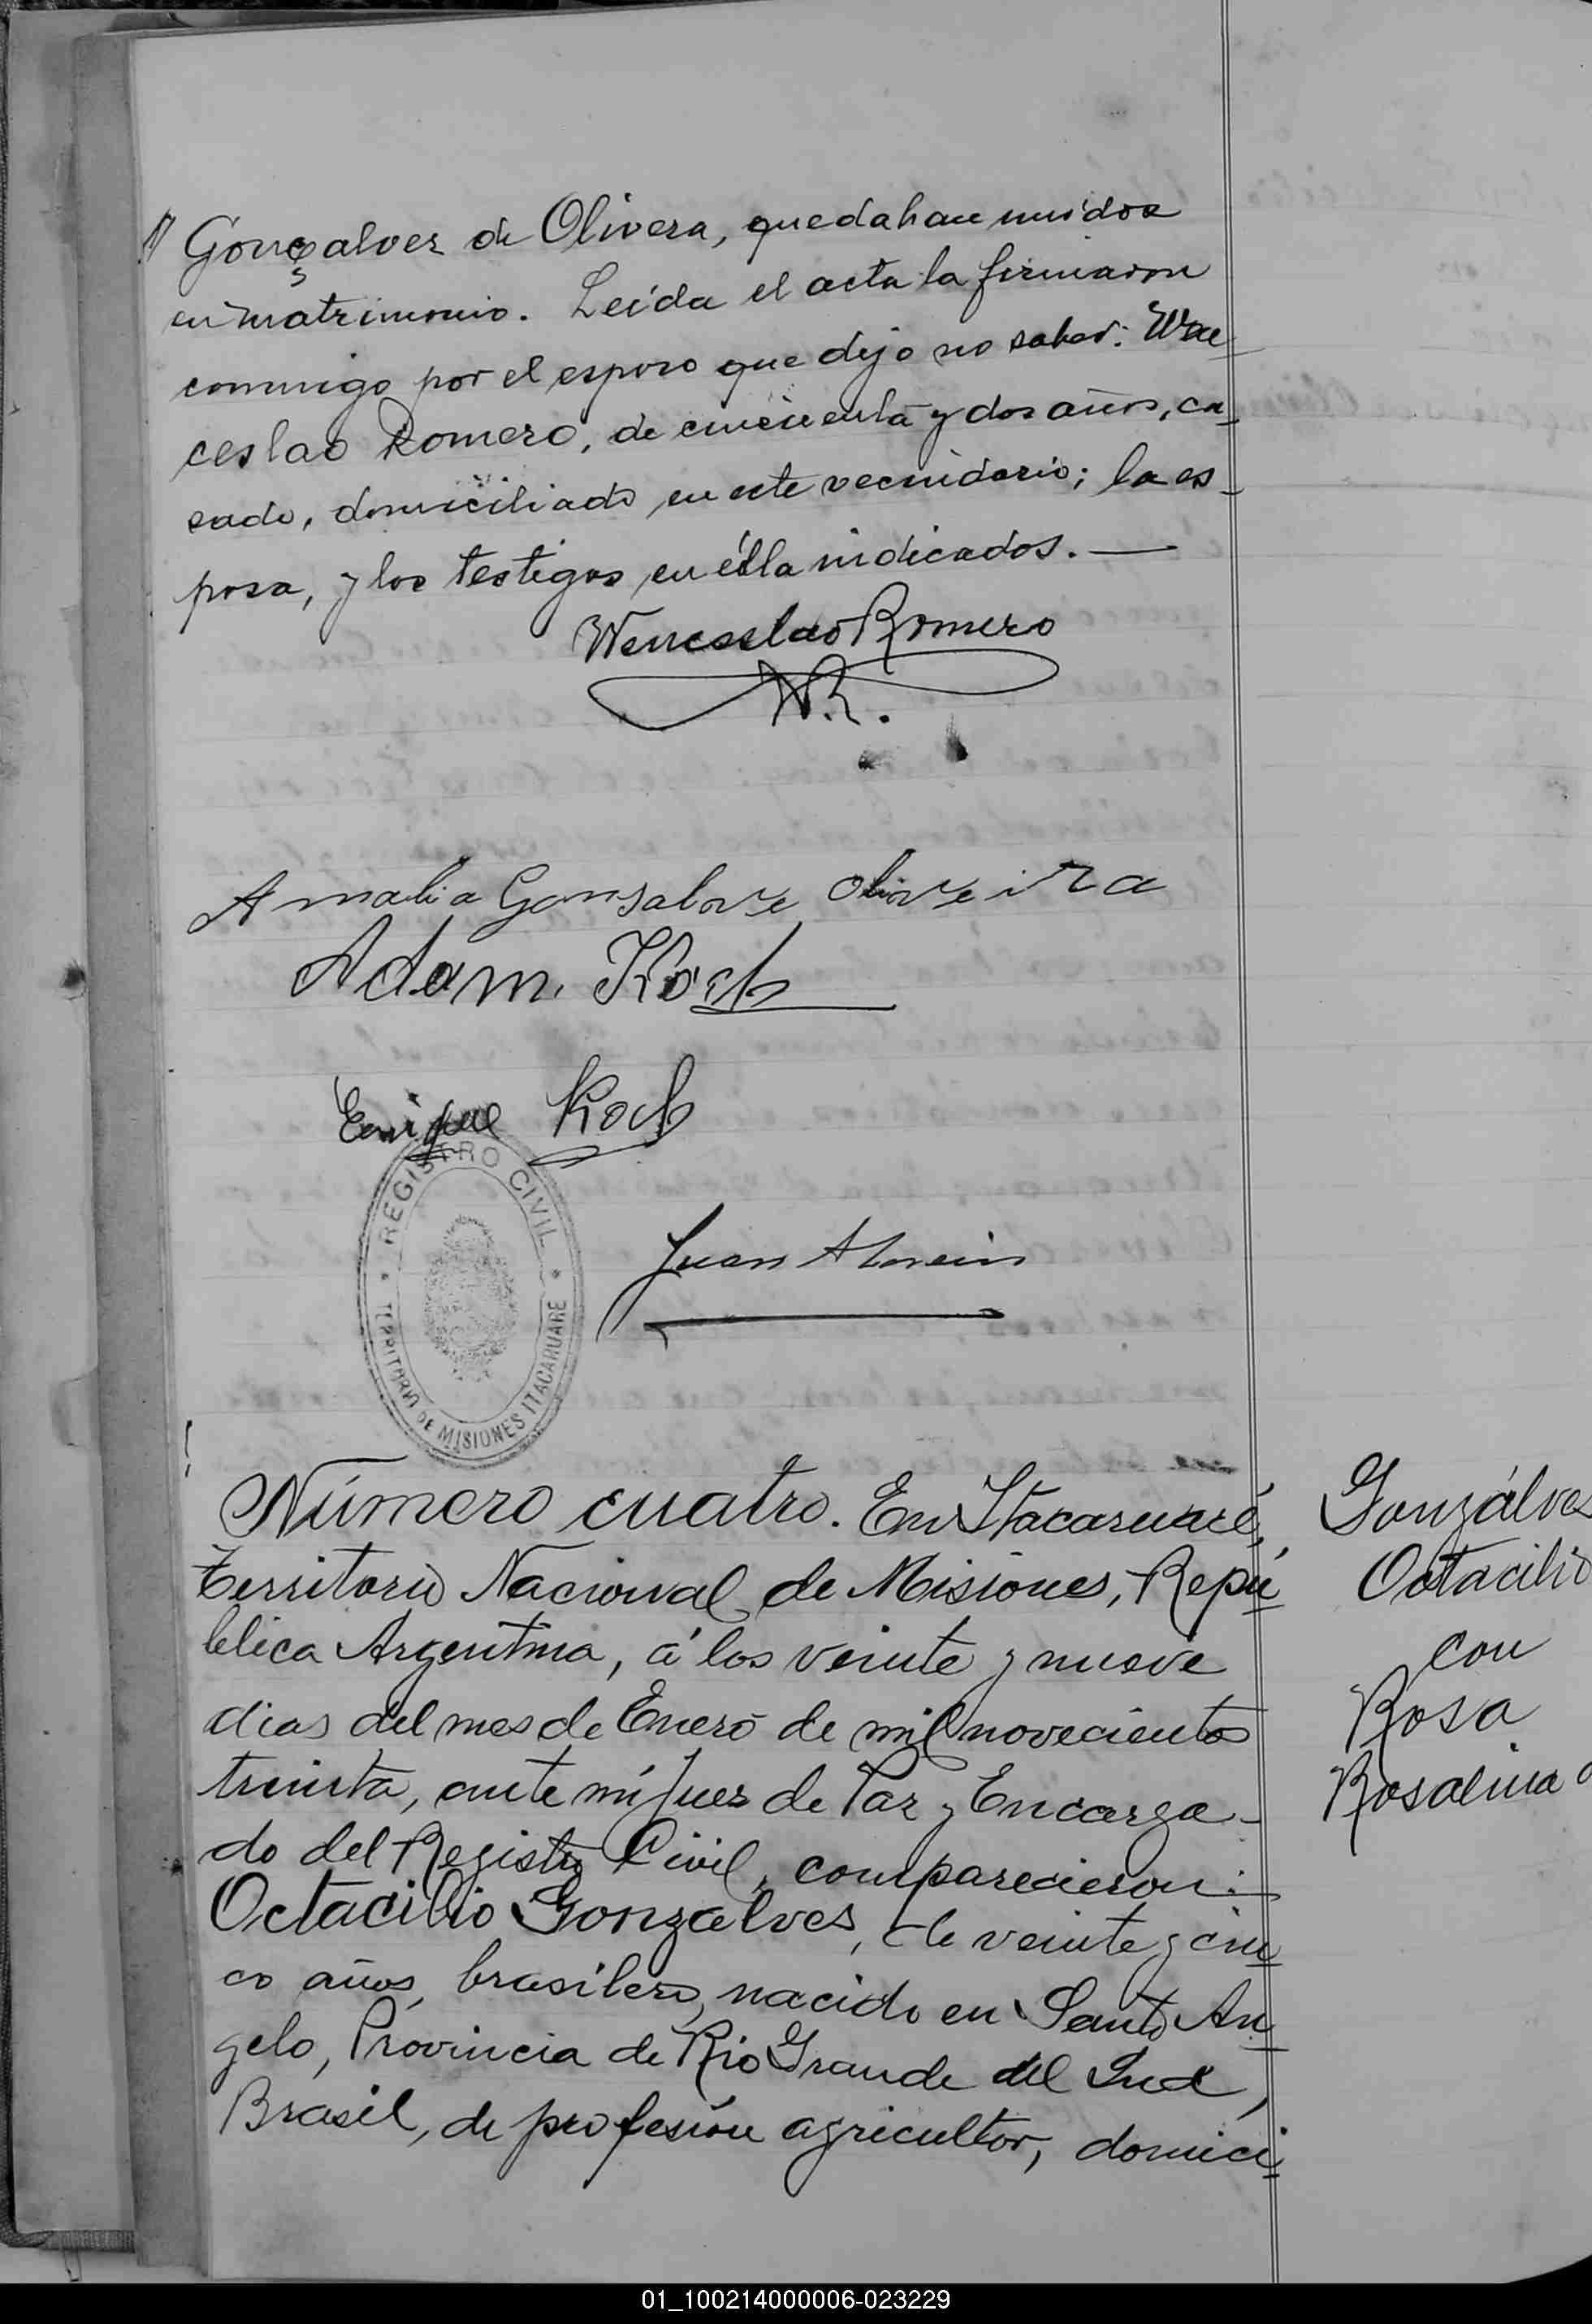 Gonçalves de Olivera, quedaban unidos
en matrimonio. Leída el acta la firmaron
conmigo por el esposo que dijo no saber: Wen-
ceslao Romero, de cincuenta y dos años, ca-
sado, domiciliado en este vecindario; la es-
posa, y los testigos en élla indicados.—
Wenceslao Romero
W.R.
Amalia Gonsalve Oliveira
Adam Koch
Enrique Koch
REGISTRO CIVIL
TERRITORIO DE MISIONES ITACARUARE
Juan
Número cuatro. En Itacaruaré,
Territorio Nacional de Misiones, Repú-
blica Argentina, á los veinte y nueve
dias del mes de Enero de mil novecientos
treinta, ante mí Juez de Paz y Encarga-
do del Registro Civil, comparecieron:
Octacilio Gonzalves, de veinte y cin-
co años, brasilero, nacido en Santo An-
gelo, Provincia de Rio Grande del Sud,
Brasil, de profesión agricultor, domici-
Gonzálves
Octacilio
con
Rosa
Rosalina
01_100214000006-023229